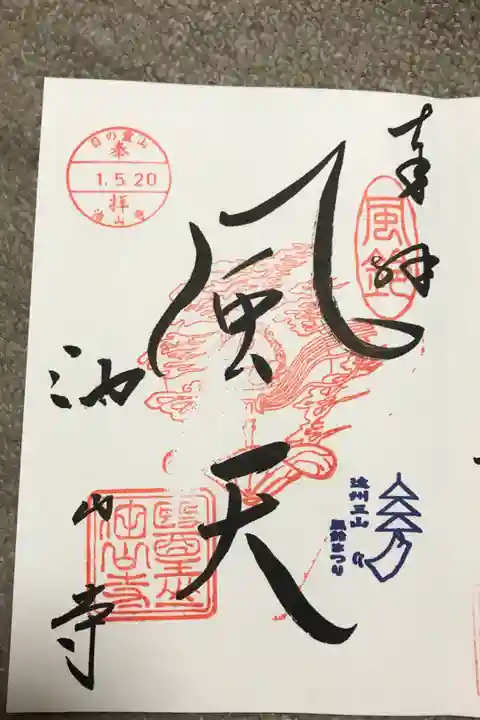 奉拝
風鈴
風天
池山寺
目の霊山
奉
1.5.20
拝
油山寺
遠州三山
風鈴まつり
油山寺